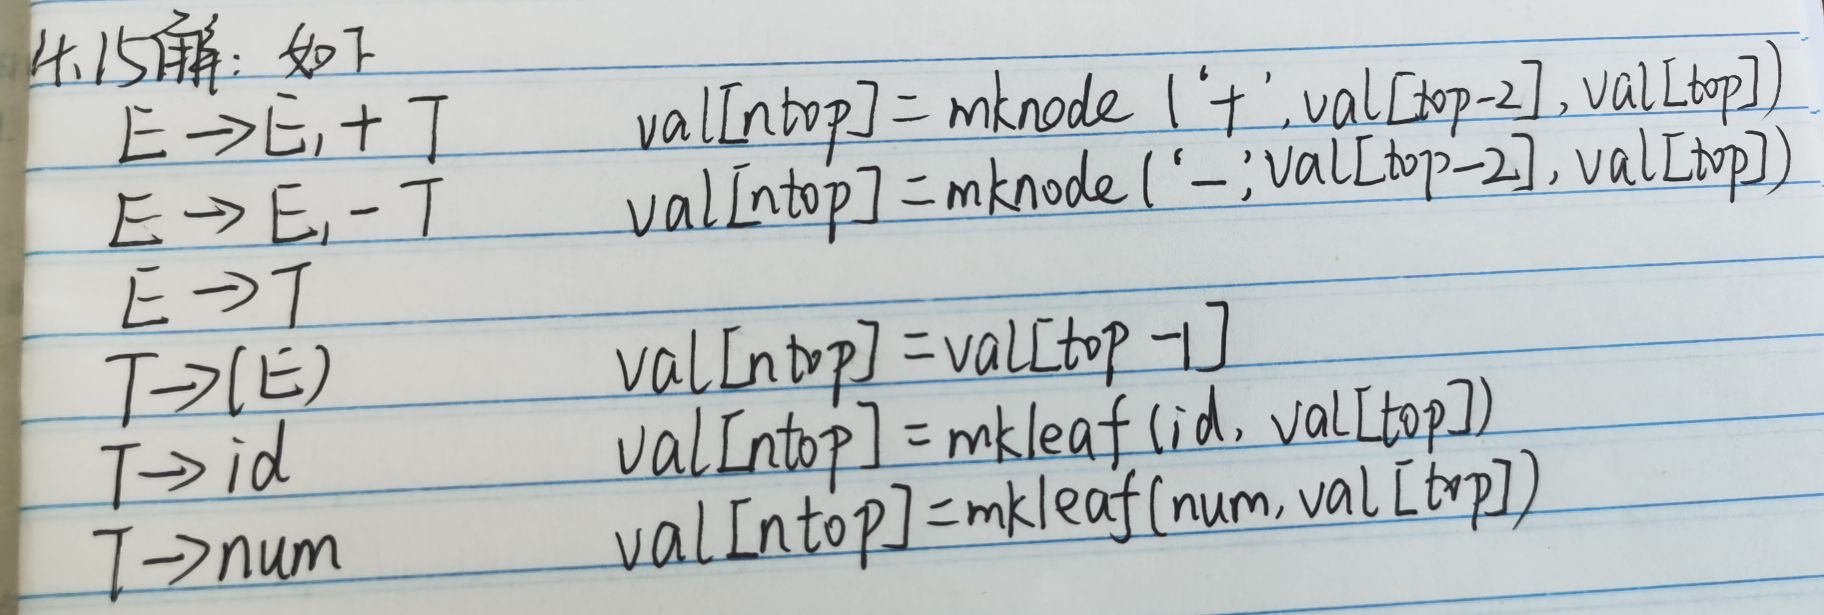 4.15解: 如下
E→E₁+T val[ntop]=mknode('+',val[top-2],val[top])
E→E₁-T val[ntop]=mknode('-',val[top-2],val[top])
E→T
T→(E) val[ntop]=val[top-1]
T→id val[ntop]=mkleaf(id, val[top])
T→num val[ntop]=mkleaf(num,val[top])